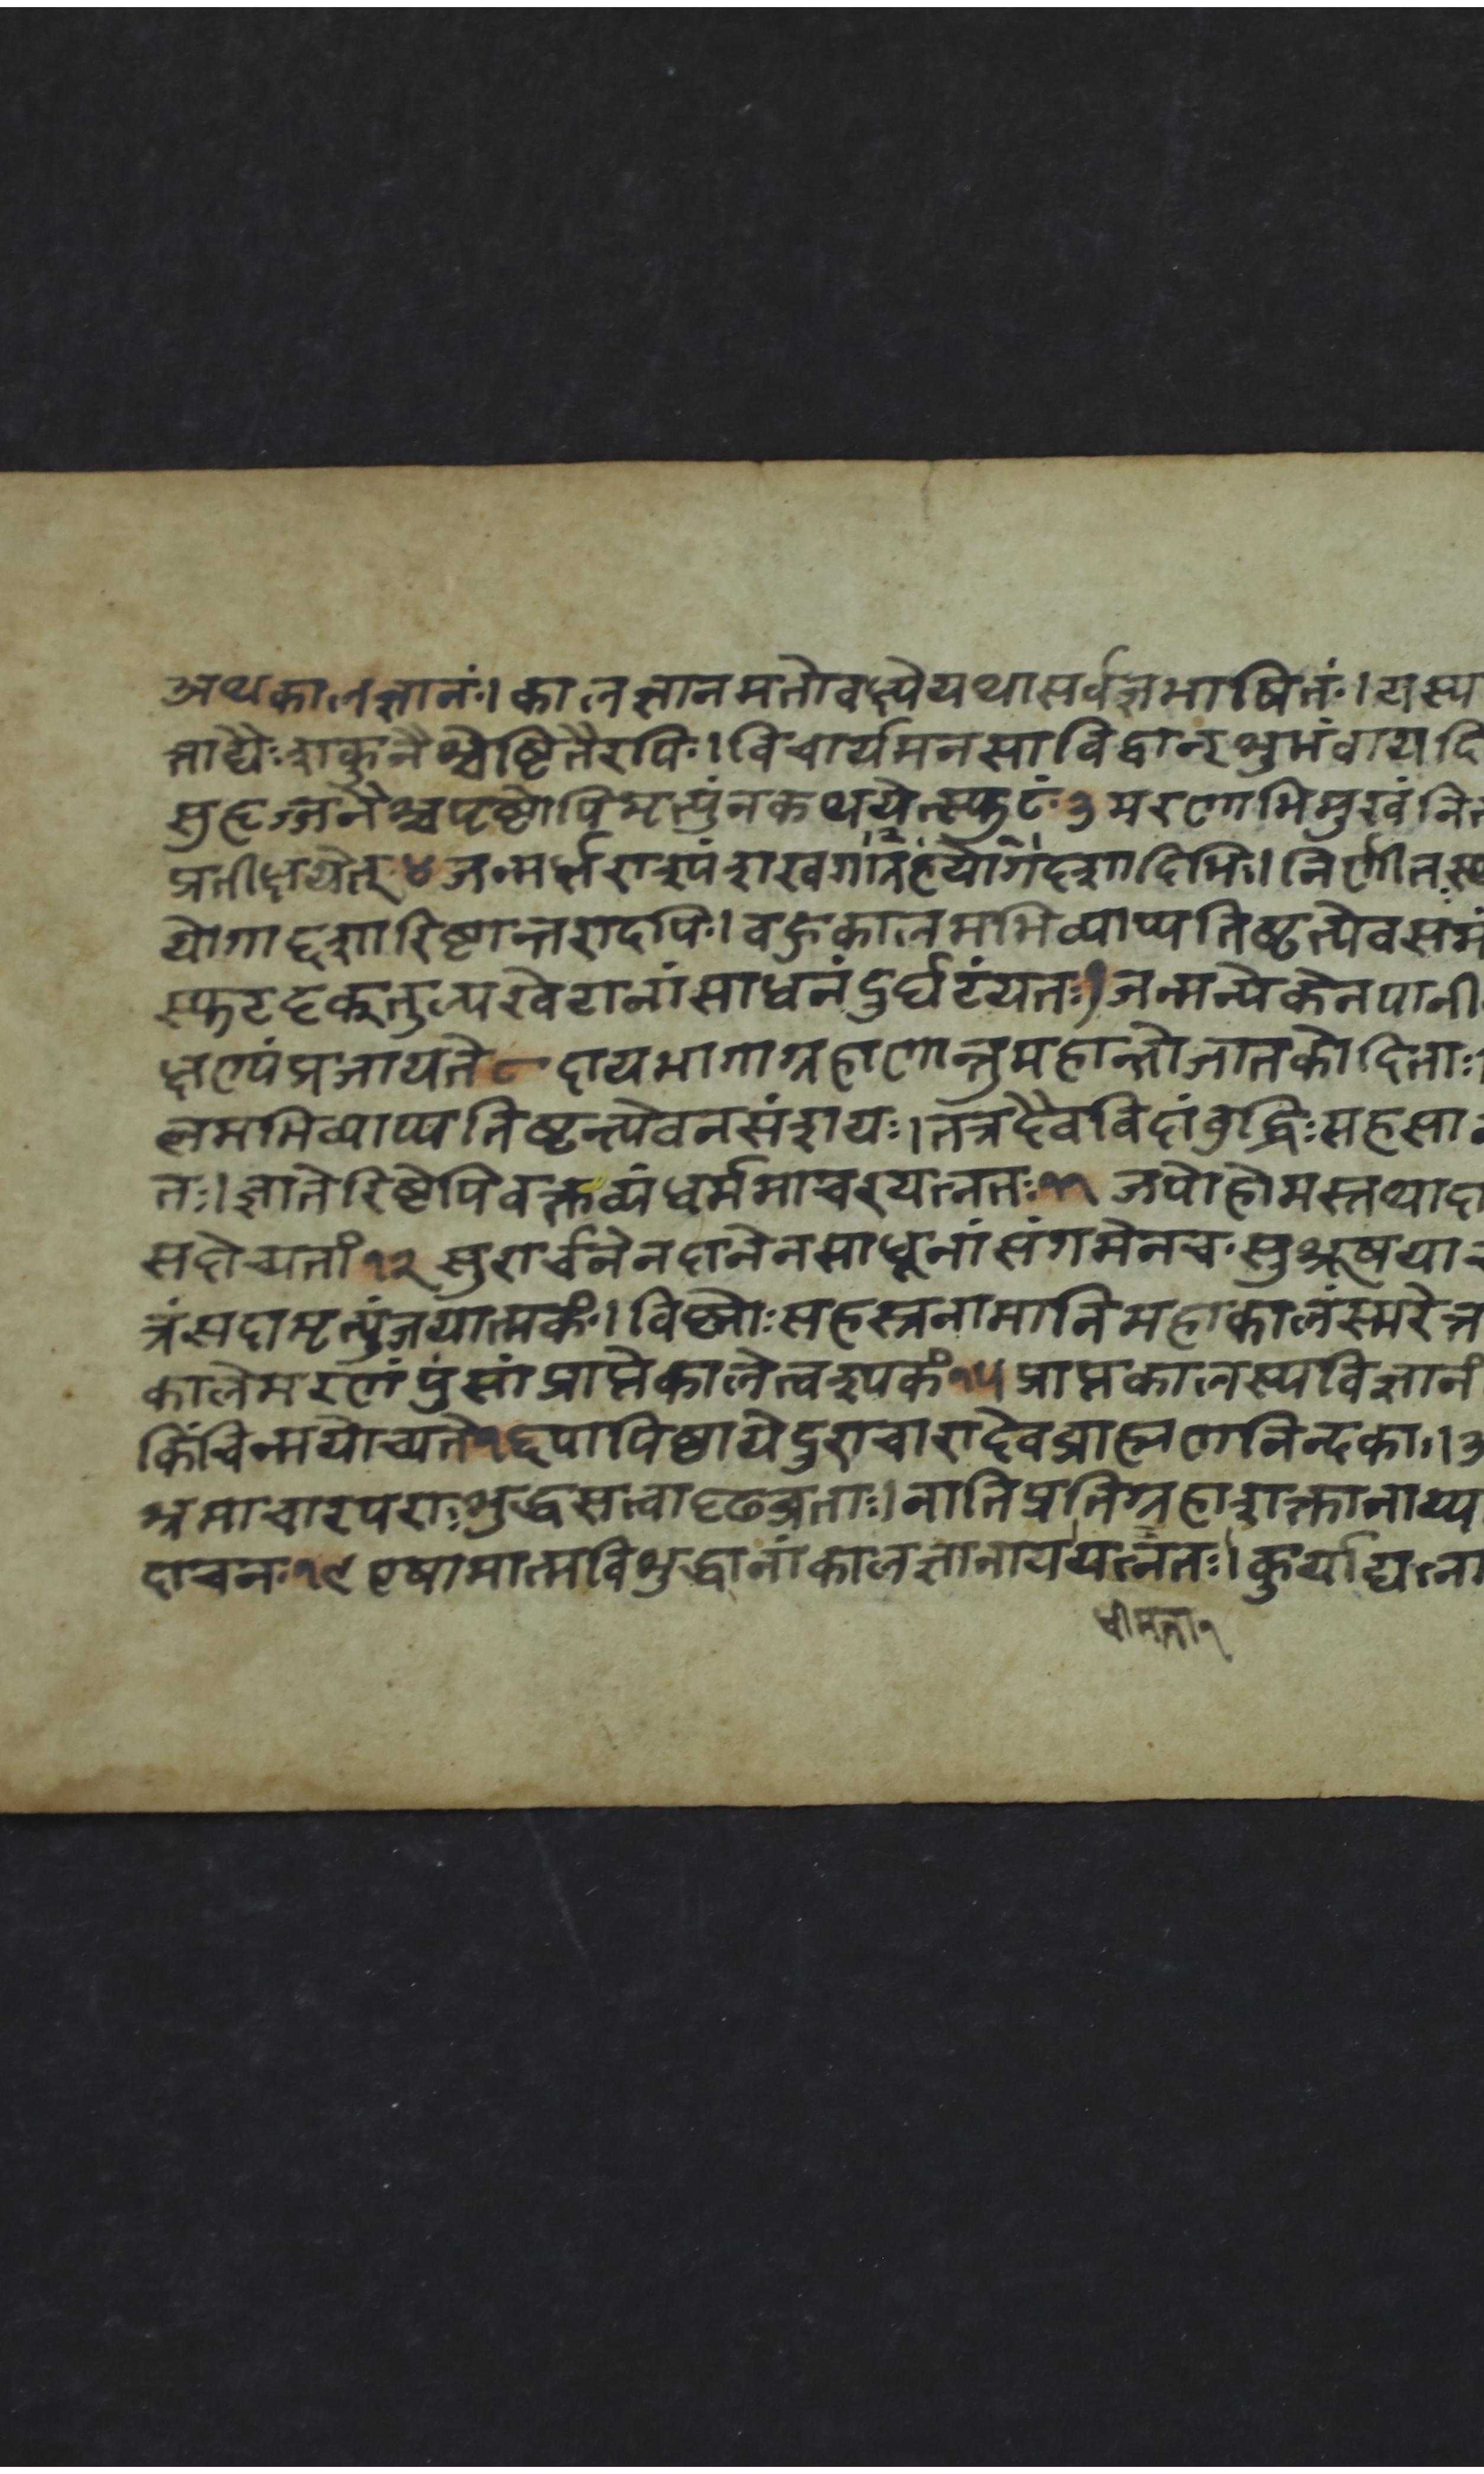 अथकालज्ञानं।कालज्ञानमतोवक्ष्येयथासर्वज्ञभाषितं।यस्य
ताद्यैःशकुनैश्चेष्टितैरपि।विचार्यमनसाविद्वान्शुभंवायदि
सुहृज्जनैश्चपृष्टोपिमृत्युंनकथयेत्स्फुटं३मरणाभिमुखंनित
प्रतीक्षयेत्४जन्मर्क्षराशूपंशखगा
योगाद्दशारिष्टान्तरादपि।वहुकालमभिव्याप्यतिष्टत्येवसमं
स्फुटदृक्तुल्यखेटानांसाधनंदुर्घटंयतः।जन्मन्येकेनपानी
क्षण्यंप्रजायते८दायभागाग्रहाणान्तुमहान्तोजातकोदिताः।
लमभिव्याप्यतिष्टन्त्येवनसंशयः।तत्रदैवविदांवुद्धिःसहसा
तः।ज्ञातेरिष्टेपिवक्तव्यंधर्ममाचरयत्नतः११जपोहोमस्तथादा
सदोच्यतां१२सुरार्चनेनदानेनसाधूनांसंगमेनच।सुश्रूषया
त्रंसदामृत्युंजयात्मकं।विष्णोःसहस्त्रनामानिमहाकालंस्मरेन्न
कालेमरणंपुंसांप्राप्तेकालेत्वरूपकं१५प्राप्तकालस्यविज्ञानं
किंचिन्मयोच्यते१६पापिष्ठायेदुराचारादेवब्राह्मणनिन्दकाः।अ
श्रमाचारपराःशुद्धसत्वादृढव्रताः।नातिप्रतिग्रहाशक्तानाप्य
दाचन१९एषामात्मविशुद्धानांकालज्ञानाययत्नतः।कुर्याद्यत्ना
धीमता१